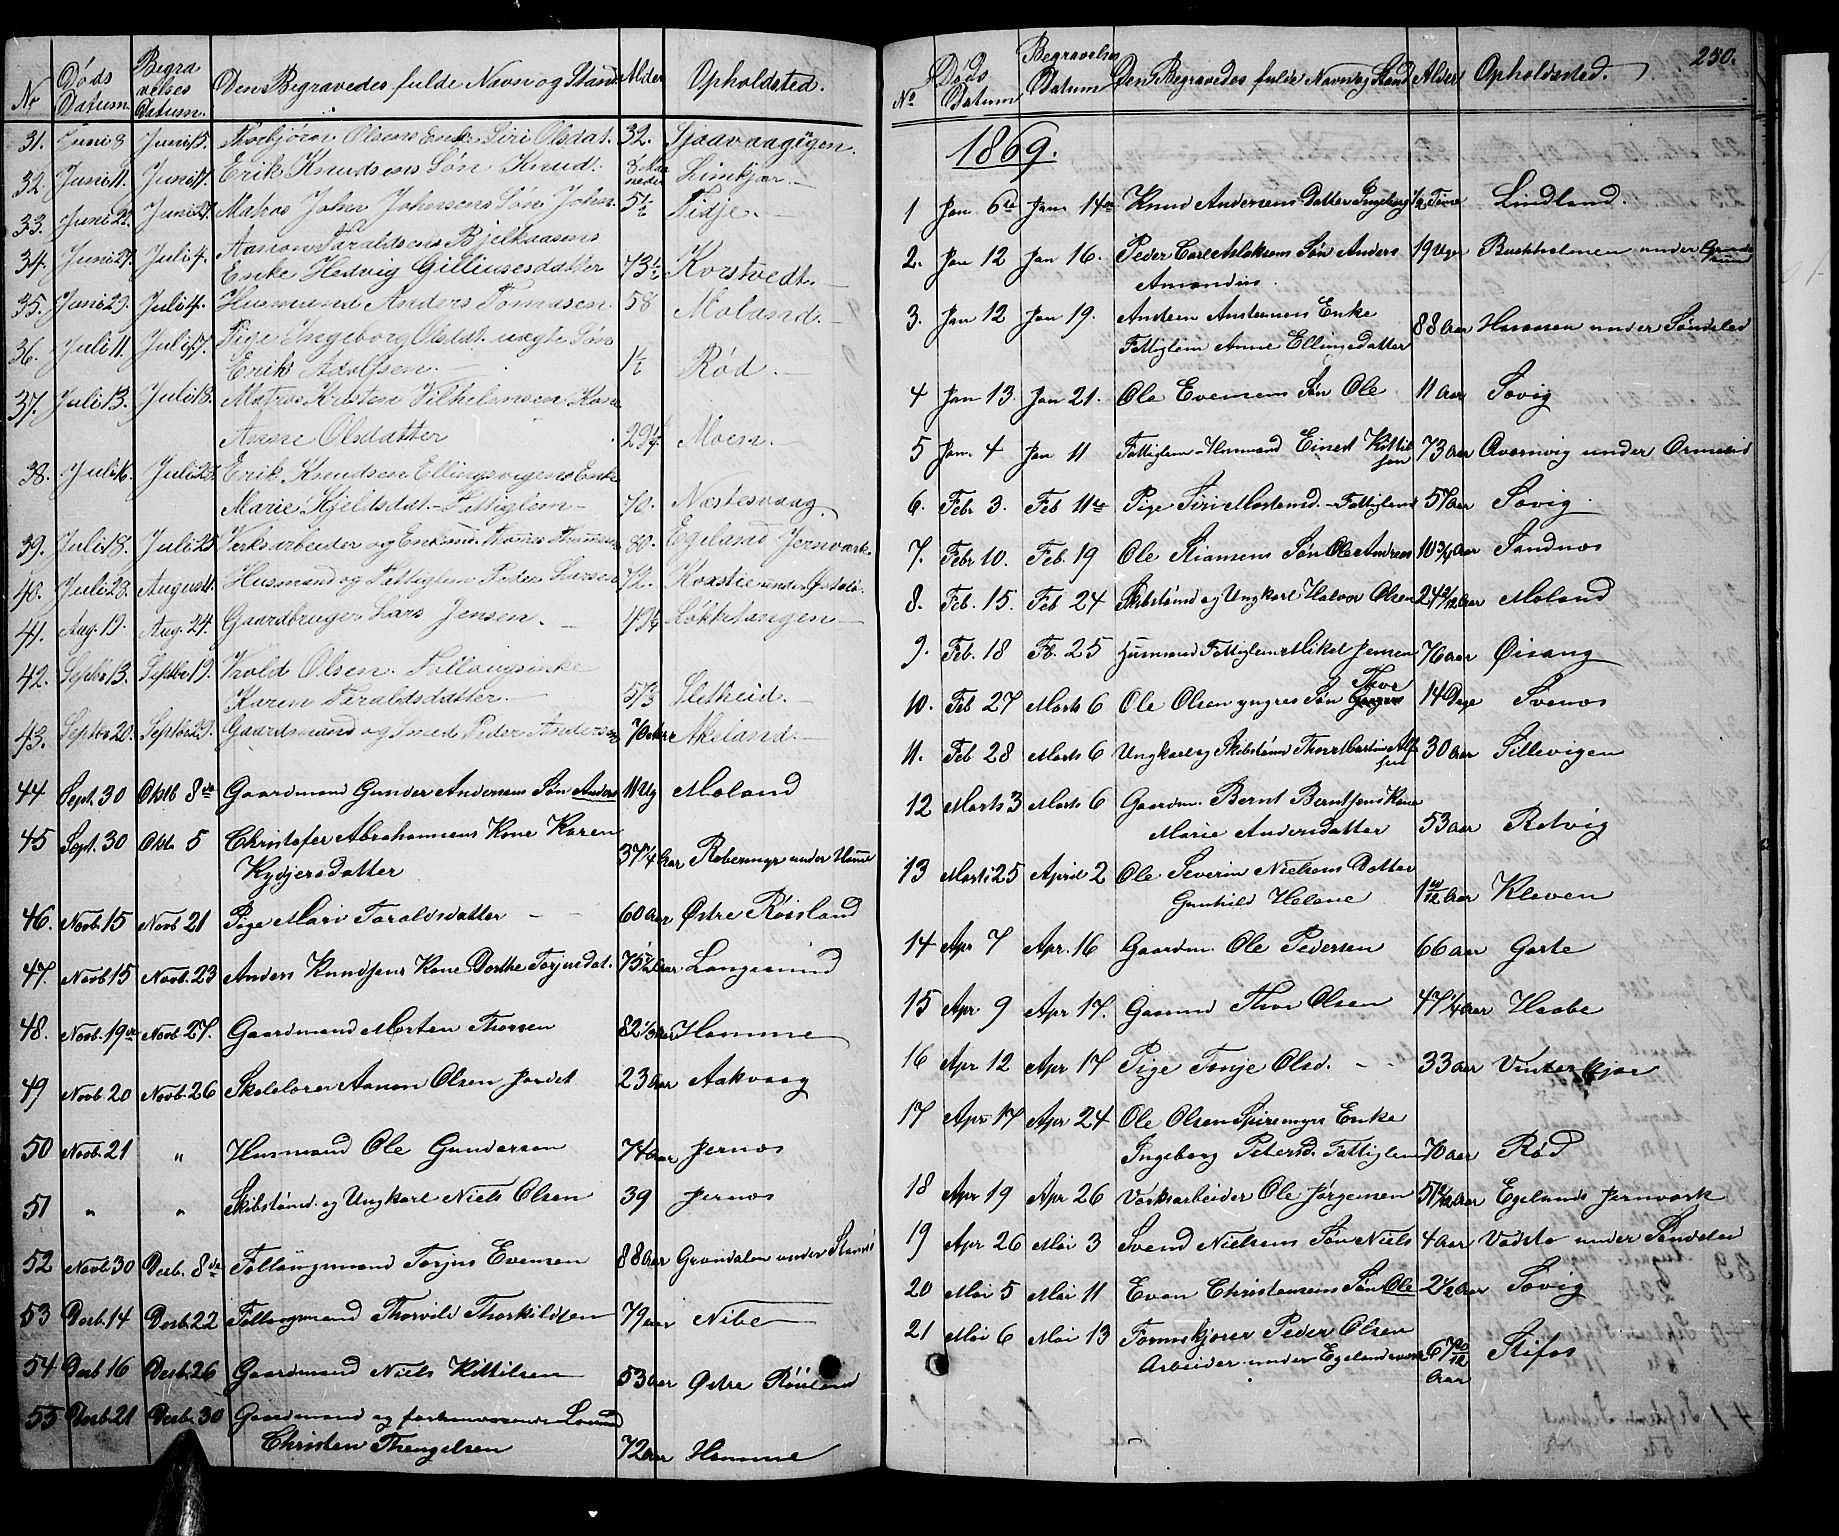 No Døds Datum. Begravelses Datum. Den Begravedes fulde Navn og Stand Alder Opholdsted.
31. Juni 9 Juni 15. Thorbjörn Olsens Enke Siri Olsdat. 32. Sjaavaag
32. Juni 11. Juni 17. Erik Knudsens Søn Knud. 8 Maaneder Limkjær.
33. Juni 22. Juni 27. Matros John Johnsens Søn John 5½ Tidje.
34. Juni 27. Juli 4. Aanon Taraldsens
Enke Hedvig Gilliusesdatter 73½ Korstvedt.
35. Juni 29. Juli 4. Husmand Anders Tomasen. 58 Moland.
36. Juli 11. Juli 17. Pige Ingeborg Olsdt. uægte Søn
Erik Adolfsen. 1½ Rød.
37. Juli 13. Juli 18. Matros Kristen Vilhelmsen Kone
Anne Olsdatter 29¼ Moen.
38. Juli 16. Juli 25. Erik Knudsen Ellingsvigens Enke
Marie Kjeltsdat. Fattiglem 70. Næstesvaag.
39. Juli 18. Juli 25 Verksarbeider og Enkmd. 80. Egeland Jernværk
40. Juli 28. August 4. Husmand og Fattiglem Peder Larsen 72. Kvastie under Østeli.
41. Aug. 19. Aug. 24. Gaardbruger Lars Jensen. Løkketangen
42. Septbr 13. Septbr 19. Kield Olsen.
Karen Teraldsdatter. Sletheid.
43. Septbr 20. Septbr 29. Gaardmand og Smed Peder Andersen 70 Akeland.
44 Sept. 30 Oktb 8de Gaardmand Gunder Andersens Søn Anders 11 Ug Moland
45 Sept. 30 Oktb 5 Christofer Abrahamsens Kone Karen
Kydjersdatter 37¼ Aar Røbermyr under Hamme
46. Novb. 15 Novb 21 Pige Mari Taraldsdatter 60 Aar Østre Røisland
47. Novb 15 Novb. 23 Anders Knudsens Kone Dorthe Torjusdat. 75½ Aar Langsund
48. Novb. 19de Novb. 27. Gaardmand Morten Thorsen 82⅓ Aar Hamme
49 Novb. 20 Novb. 26 Skolelærer Aanon Olsen Jordet 23 Aar Aakvaag
50 Novb. 21 " Husmand Ole Gundersen 74 Aar Jernæs
51 " " Skibstømd. og Ungkarl Niels Olsen 39 Jernæs
52 Novb. 30 Decb. 8de Follaugsmand Torjus Evensen 88 Aar Grøndalen under
53 Decb. 14 Decb. 22 Follaugsmand Thorvild Thorkildsen 79 Aar Nibe
54 Decb 16 Decb. 26 Gaardmand Niels Kittilsen 53 Aar Østre Røisland
55 Decb. 21 Decb. 30 Gaardmand og forhenværende
Christen Thengelsen 72 Aar Hamme
250.
No Døds Datum Begravelses Datum Den Begravedes fulde Navn og Stand Alder Opholdssted.
1869.
1 Jan 6te Jan 14de Knud Andersens Datter Ingeborg ½ Time Lindland.
2. Jan 12 Jan 16. Peder Carl Aslaksens Søn Anders
Amandus. 19 Uger Buskholmen under
3. Jan 12 Jan 19. Andeen Andersens Enke
Fattiglem Anne Ellingsdatter 88 Aar under Søndeled
4 Jan 13 Jan 21. Ole Evensens Søn Ole 11 Aar Søvig
5 Jan. 4 Jan 11 Fattiglem Husmand Einert Kittilsen 73 Aar Qvernvig under
6. Febr 3. Feb 11te Pige Siri Mortensd. Fattiglem 57 Aar Søvig
7. Febr 10. Feb. 19 Ole Stiansens Søn Ole Andreas 10¾ Aar Sandnæs
8. Feb. 15. Feb 24 Skibstømd og Ungkarl Halvor Olsen Moland
9. Feb. 18 Fb. 25 Husmand Fattiglem Mikel Jensen 76 Aar Øisang
10. Feb 27 Marts 6 Ole Olsen yngres Søn Thor 14 Dage Svenæs
11. Feb 28 Marts 6 Ungkarl og Skibstømd Thor Martin 30 Aar Sillevigen
12 Marts 3 Marts 6 Gaardm. Bernt Berntsens Kone
Marie Andersdatter 53 Aar Rødvig
13 Marts 25 April 2 Ole Severin Nielsens Datter
Gunhild Helene Kleven
14 Apr 7 Apr. 16 Gaardm. Ole Pedersen 66 Aar Garte
15 Apr. 9 Apr 17. Gaamd Thor Olsen 47¼ Aar Haabe
16 Apr 12 Apr 17 Pige Tonje Olsd. 33 Aar Vinterkjær
17 Apr. 17 Apr 24 Ole Olsen Spiremyrs Enke
Ingeborg Petersd. Fattiglem 70 Aar Rød
18 Apr 19 Apr 26 Værksarbeider Ole Jørgensen Egelands Jernværk
19 Apr 26 Mai 3 Svend Nielsens Søn Niels 4 Aar Vadste under Søndeled
20 Mai 5 Mai 11 Even Christensens Søn Ole 2½ Aar Søvig
21 Mai 6 Mai 13 Formskjærer Peder Olsen
Arbeider under Egelands Værk Stifos